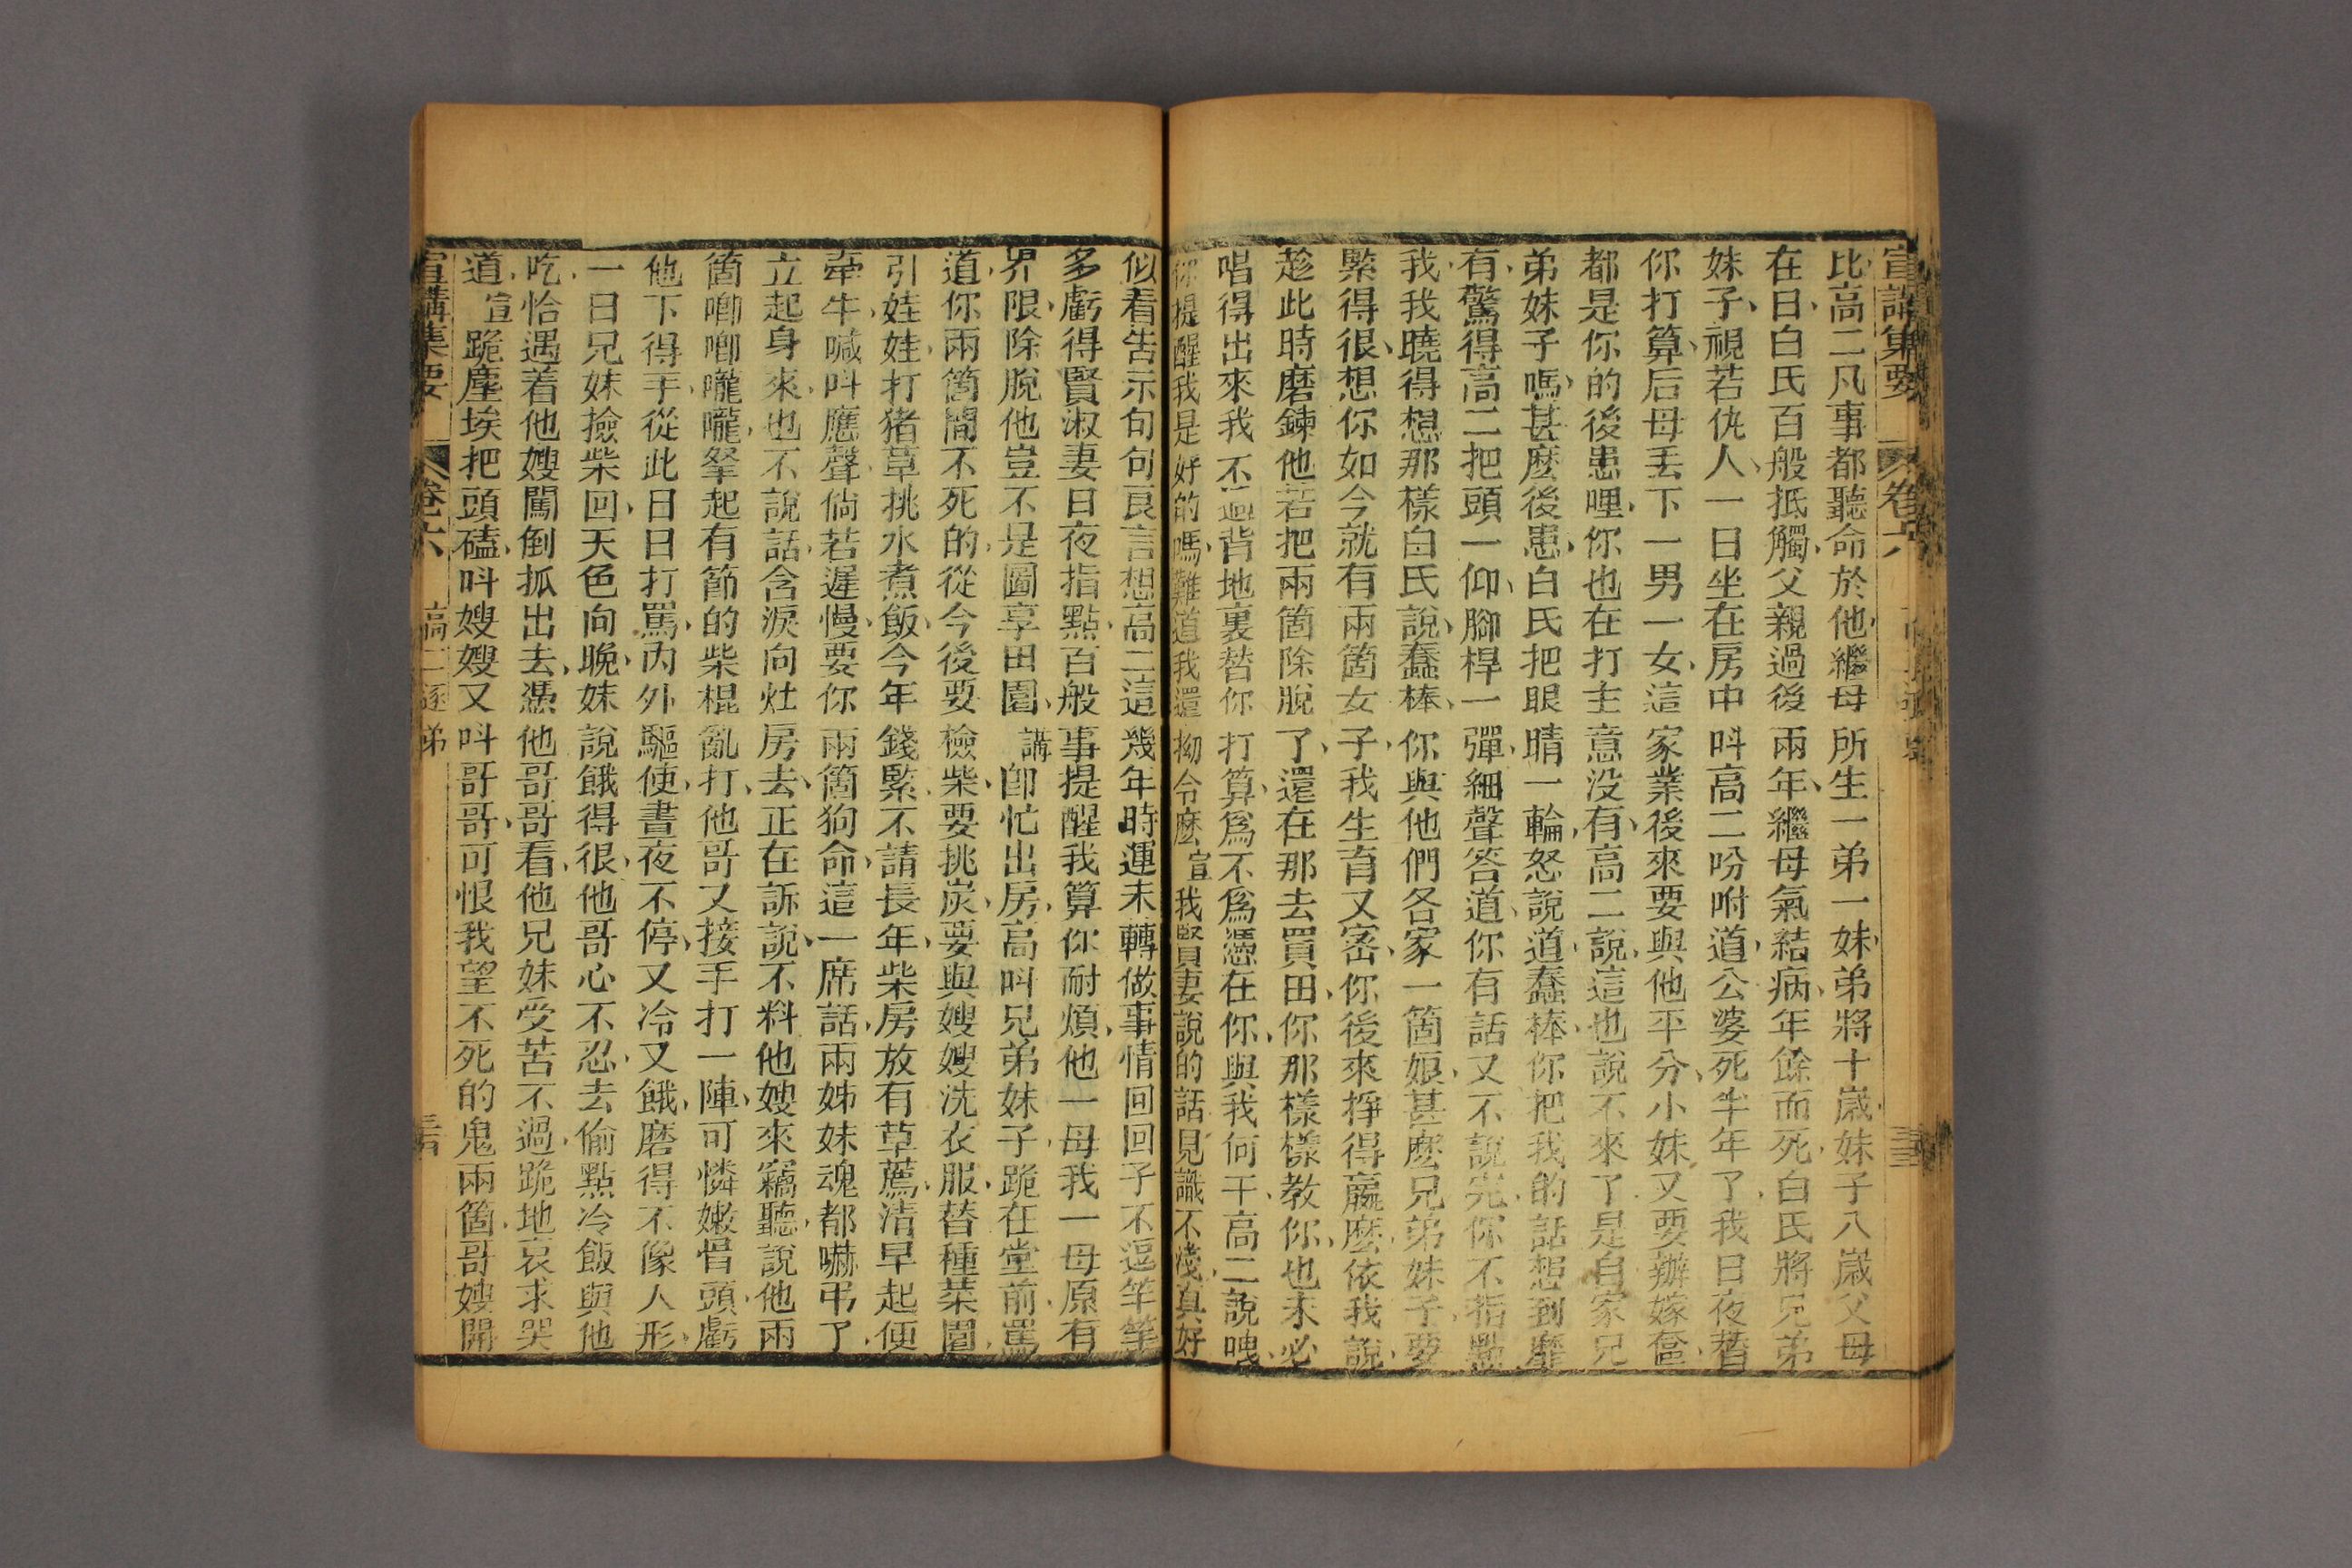 宣講集要 卷六
比高二凡事都聽命於他繼母所生一弟一妹弟將十歲妹子八歲父母
在日白氏百般抵觸父親過後兩年繼母氣結病年餘而死白氏將兄弟
妹子視若仇人一日坐在房中呌高二吩咐道公婆死半年了我日夜替
你打算后母丟下一男一女這家業後來要與他平分小妹又要辦嫁奩
都是你的後患哩你也在打主意没有高二說這也說不來了是自家兄
弟妹子嗎甚麽後患白氏把眼睛一輪怒說道蠢棒你把我的話想到靡
有驚得高二把頭一仰腳桿一彈細聲答道你有話又不說完你不指點
我我曉得想那樣白氏說蠢棒你與他們各家一箇娘甚麽兄弟妹子要
緊得很想你如今就有兩箇女子我生育又密你後來掙得贏麽依我說
趁此時磨鍊他若把兩箇除脫了還在那去買田你那樣樣教你也未必
唱得出來我不過背地裏替你打算爲不爲憑在你與我何干高二說哦
你提醒我是好的嗎難道我還拗令麽宣我賢妻說的話見識不淺真好
似看告示句句良言想高二這幾年時運未轉做事情回回子不逗竿竿
多虧得賢淑妻日夜指點百般事提醒我算你耐煩他一母我一母原有
界限除脫他豈不是圖享田園講卽忙出房高呌兄弟妹子跪在堂前罵
道你兩箇鬧不死的從今後要檢柴要挑炭要與嫂嫂洗衣服替種菜園
引娃娃打猪草挑水煮飯今年錢緊不請長年柴房放有草薦清早起便
牽牛喊呌應聲倘若遲慢要你兩箇狗命這一席話兩姊妹魂都嚇弔了
立起身來也不說話含淚向灶房去正在訴說不料他嫂來竊聽說他兩
箇唧唧嚨嚨拏起有節的柴棍亂打他哥又接手打一陣可憐嫩骨頭虧
他下得手從此日日打罵內外驅使晝夜不停又冷又餓磨得不像人形
一日兄妹撿柴回天色向晚妹說餓得很他哥心不忍去偷點冷飯與他
吃恰遇着他嫂闖倒抓出去憑他哥哥看他兄妹受苦不過跪地哀求哭
道宣跪塵埃把頭磕呌嫂嫂又呌哥哥可恨我望不死的鬼兩箇哥嫂開
宣講集要 卷六 高二逐弟